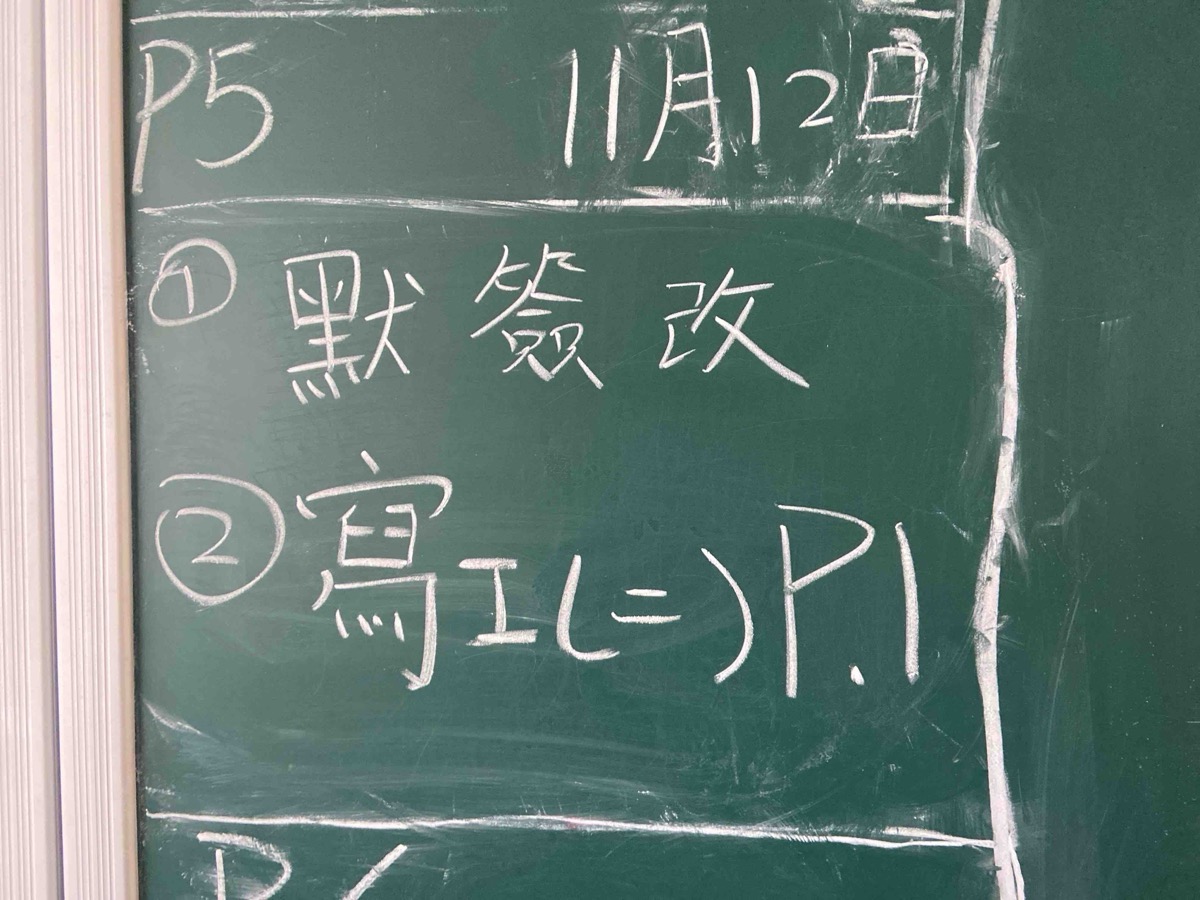 P5 11月12日
① 默簽改
② 寫工(二)P.1